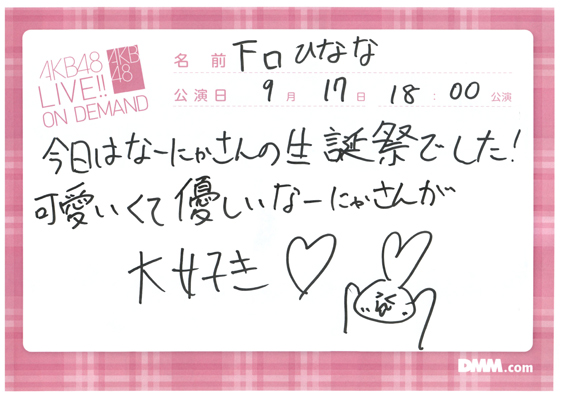 AKB48
LIVE!!
ON DEMAND
AKB
48
名前 下口ひなな
公演日 9月17日 18:00公演
今日はなーにゃさんの生誕祭でした!
可愛いくて優しいなーにゃさんが
大好き♡
DMM.com